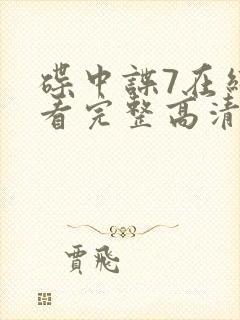 碟中諜7在
看完整高清
賈飛